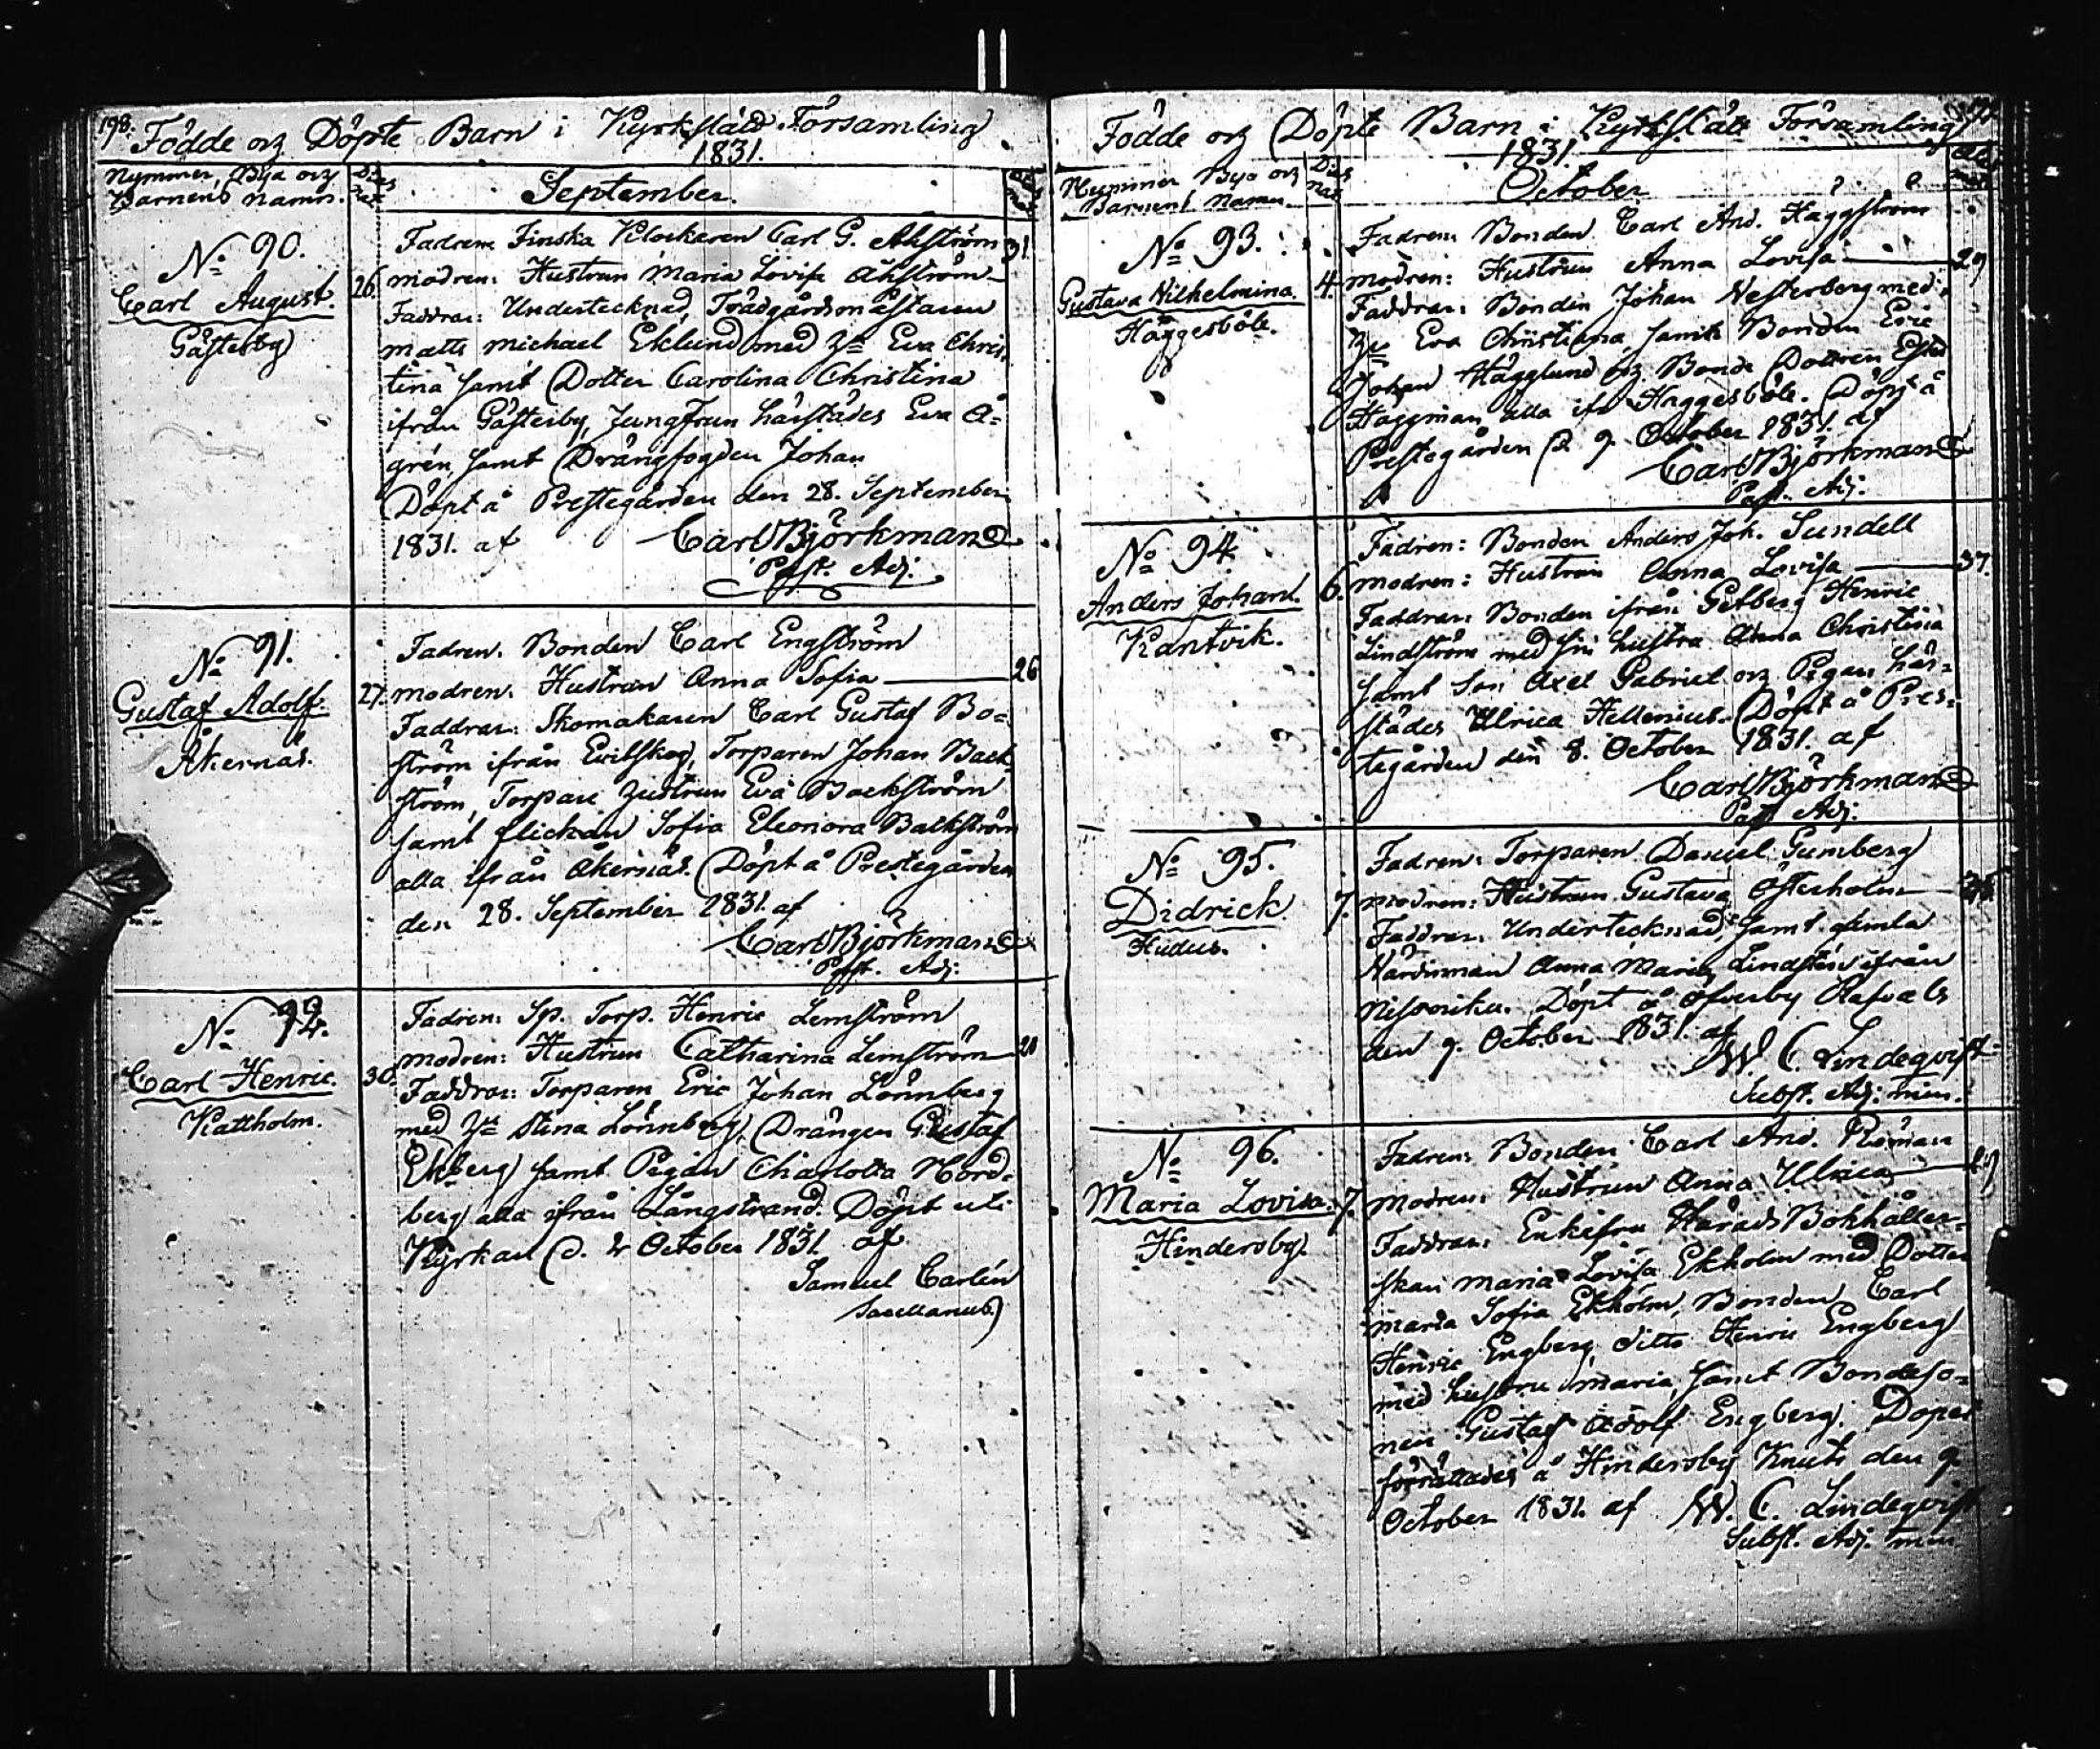 198.
Födde och Döpte Barn i Kyrkslätt Församling
1831.
Nummer, Bya och
Barnens namn.
Dies
Nat.
September.
No 90.
Carl August.
Gåsterby
26.
Fadren: Finska Klockaren Carl G. Åhström
31
modren: Hustrun Maria Lovisa Åhström
Faddrar: Undertecknad, Trädgårdsmästaren
matts michael Eklund med H:u Eva Chris,
tina samt Dotter Carolina Christina
ifrån Gåsterby, Jungfrun härstädes Eva Å=
grén samt Drängfogden Johan
Döpt å Prestegården den 28. September
1831. af Carl Björkman
Past. Adj.
No 91.
Gustaf Adolf.
Åkernäs.
27.
Fadren: Bonden Carl Engström
modren: Hustrun Anna Sofia
26
Faddrar: Skomakaren Carl Gustaf Bo=
ström ifrån Evitskog, Torparen Johan Back=
ström, Torpare Hustrun Eva Backström
samt flickan Sofia Eleonora Backström
alla ifrån Åkernäs. Döpt å Prestegården
den 28. September 1831. af
Carl Björkman
Past. Adj.
No 92.
Carl Henric.
Kattholm.
30.
Fadren: Sp. Torp. Henric Lemström
modren: Hustrun Catharina Lemström
Faddrar: Torparen Eric Johan Lönnberg
med H:u Stina Lönnberg, Drängen Gustaf
Ekberg samt Pigan Charlotta Nord=
berg alla ifrån Långstrand. Döpt uti
Kyrkan d. 2 October 1831. af
Samuel Carlén
Sacellanus
Födde och Döpte Barn i Kyrkslätt Församling
1831.
Nummer Bya och
Barnens Namn
Dies
Nat.
October
No 93.
Gustava Wilhelmina.
Häggesböle.
4.
Fadren: Bonden Carl And. Häggström
modren: Hustrun Anna Lovisa
29
Faddrar: Bonden Johan Westerberg med
H:u Eva Christiana, samt Bonden Eric
Johan Hägglund och Bonde Dottren
Häggman alla ifr. Häggesböle. Döpt å
Prestegården d. 9. October 1831. af
Carl Björkman
Past. Adj.
No 94.
Anders Johan.
Kantvik.
6.
Fadren: Bonden Anders Joh. Sundell
modren: Hustrun Anna Lovisa
37.
Faddrar: Bonden ifrån Getberg Henric
Lindström med sin hustru Anna Christina
samt Son Axel Gabriel och Pigan här=
städes Ulrica Hellenius. Döpt å Pres=
tegården den 8. October 1831. af
Carl Björkman
Past. Adj.
No 95.
Didrick
7.
Fadren: Torparen Daniel Gumberg
modren: Hustrun Gustava Österholm
Faddrar: Undertecknad, samt gamla
Värdinnan Anna Maria Lindstén ifrån
Döpt å Öfverby Rafvals
den 9. October 1831. af
W. C. Lindeqvist
Subst. Adj. min.
No 96.
Maria Lovisa.
Hindersby.
7.
Fadren: Bonden Carl And. Roman
modren: Hustrun Anna Ulrica
Faddrar: Enkefru Härads Bokhåller=
skan Maria Lovisa Ekholm med Dotter
maria Sofia Ekholm, Bonden Carl
Henric Engberg, ditto Henric Engberg
med hustru maria, samt Bondeso=
nen Gustaf Adolf Engberg. Dopet
förrättades å Hindersby Knuts den 9
October 1831. af W. C. Lindeqvist
Subst. Adj. min